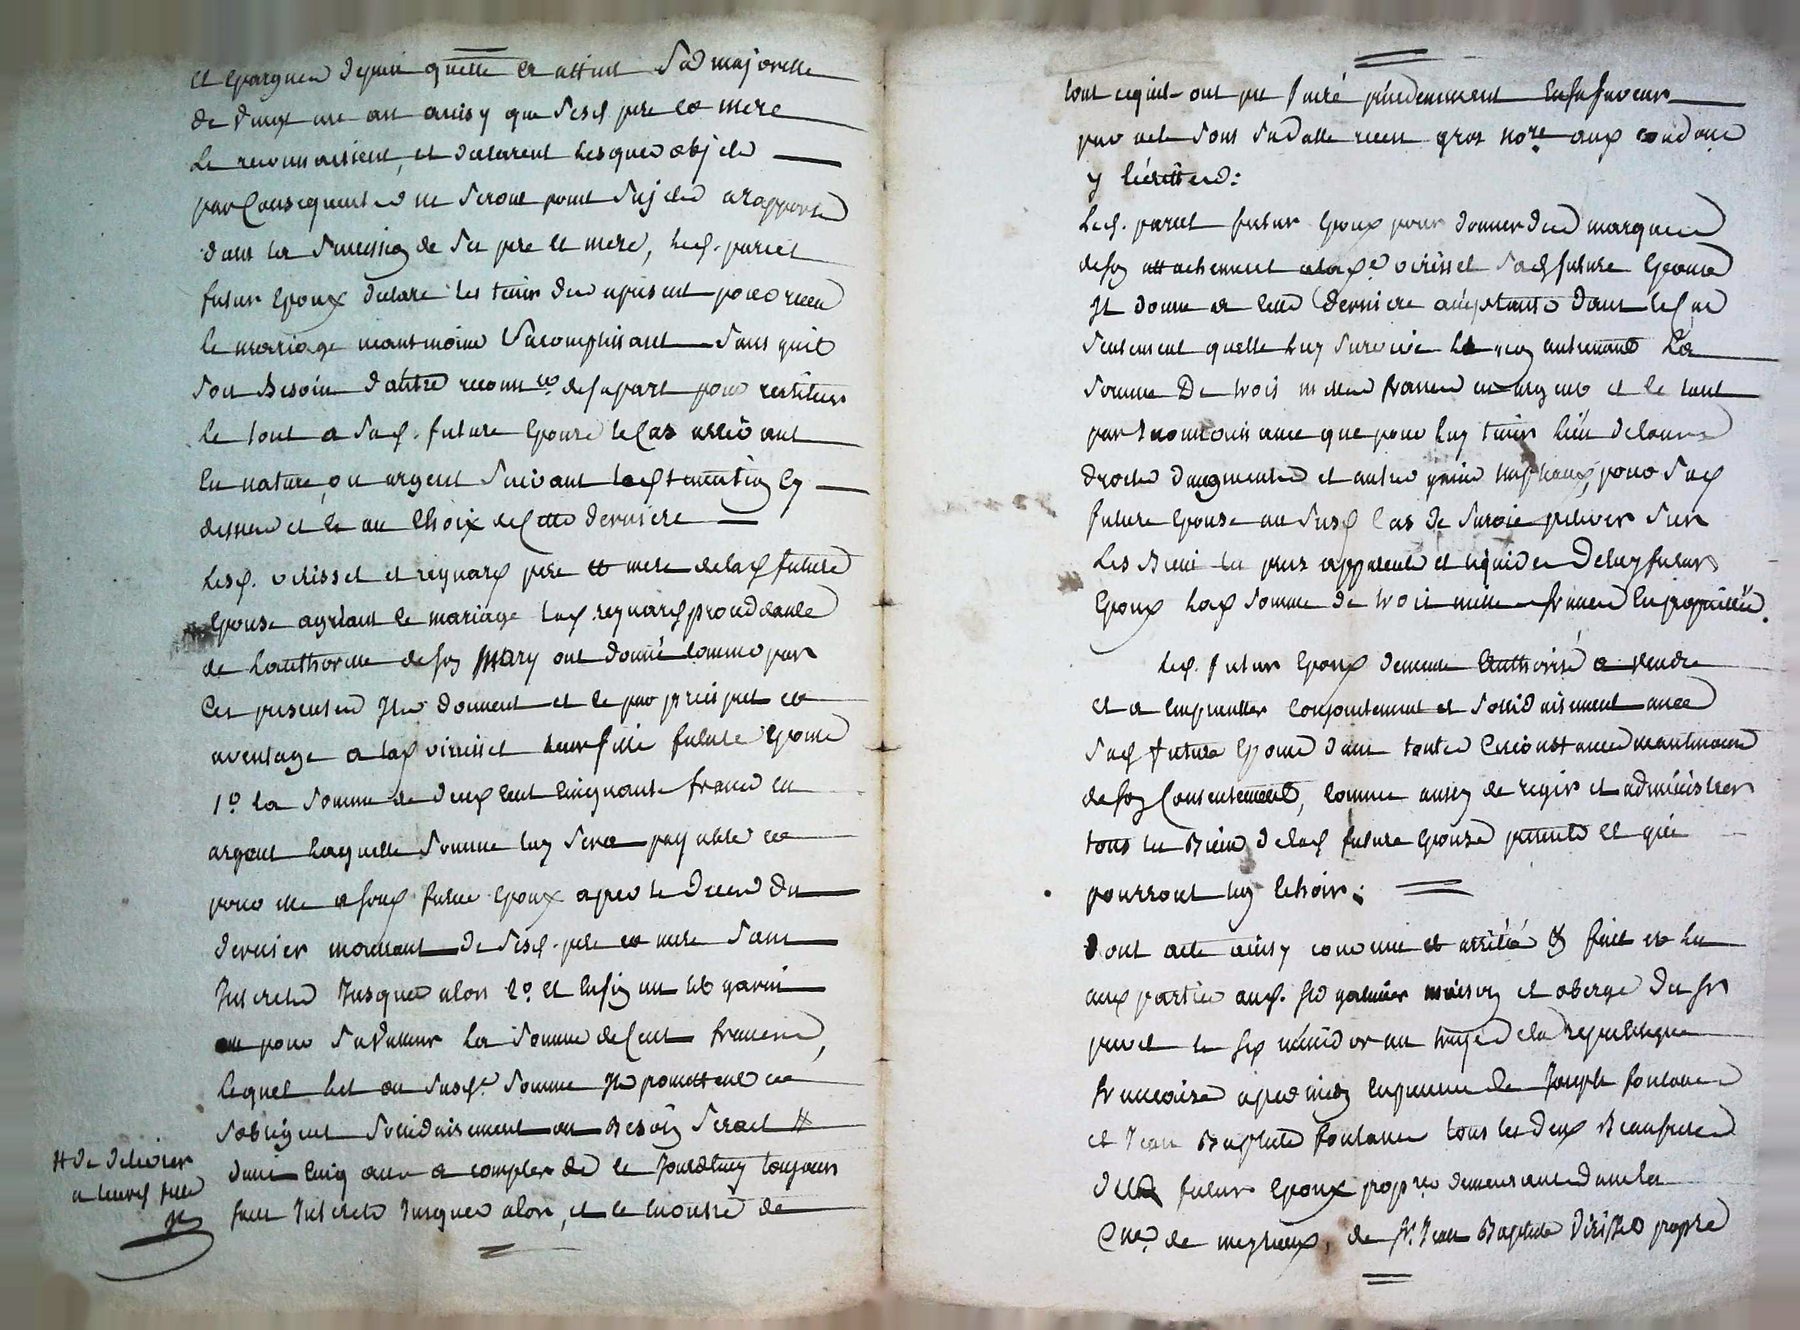 et epargnes depuis quelle a attint sad majorelle
de vingt un an ainsy que sesd pere et mere
le reconnoissent, et declarent lesques objets
par consequent ne seront point sujets a rapports
dans la succession de ses pere et mere, led. parret
futur epoux declare les tenir des apresent pour reçu
le mariage neantmoins s'acomplissant sans quil
soit besoin d'autre reconnce de sa part pour restituer
le tout a sad. future epouse le cas arrivant
en nature, ou argent suivant lad estimation cy
dessus et le au choix de cette derniere
lesd. virisset et reynard pere et mere de lad future
epouse agréant le mariage lad. reynard procedante
de l'authorité de son mary ont donné comme par
ces presentes ils donnent et le par preciput et
aventage a lad virisset leur fille future epouse
1o la somme de deux cent cinquante francs en
argent laquelle somme luy sera payable et
pour elle a sond futur epoux apres le deces du
dernier mourant de sesd. pere et mere sans
interets jusques alors 2o et enfin un lit garni
ou pour sa valeur la somme de cent francs,
lequel lit ou susde somme ils promettent et
s'obligent solidairement au besoin serait #
dans cinq ans a compter de ce jourdhuy toujours
sans interets jusques alors, et le encontre de
# de delivrer
a leurd fille
tout cequils ont pu faire precedemment en sa faveur
par acte sous sa datte reçu gros nore aux conditions
y
led. parret futur epoux pour donner des marques
de son attachement a lade virisset sad future epouse
il donne a cette derniere acceptante dans le cas
seulement quelle luy survive le non autrement la
somme de trois milles francs en argent et le tant
par que pour luy tenir lieu de tous
droits d'augments et autre gains nuptiaux, pour sad
future epouse au susd cas de survie prelever sur
les biens les plus apparents et liquides de luy futur
epoux lad somme de trois milles francs en propriété.
led. futur epoux demeure authorisé a vendre
et a emprunter conjointement et solidairement avec
sad future epouse dans toutes circonstances neantmoins
de son consentement, comme aussy de regir et administrer
tous les biens de lad future epouse presents et qui
pourront luy echoir:
dont acte ainsy convenu et arrêté & fait et lu
aux parties aud. maison et oberge du sr
le six an treize de la republique
francaise apres midy en presence de Joseph fontanes
et Jean Baptiste fontanes tous les deux beaufreres
dud futur epoux propres demeurants dans la
Cne. de meyrieux, de sr. Jean Baptiste Virisset propre